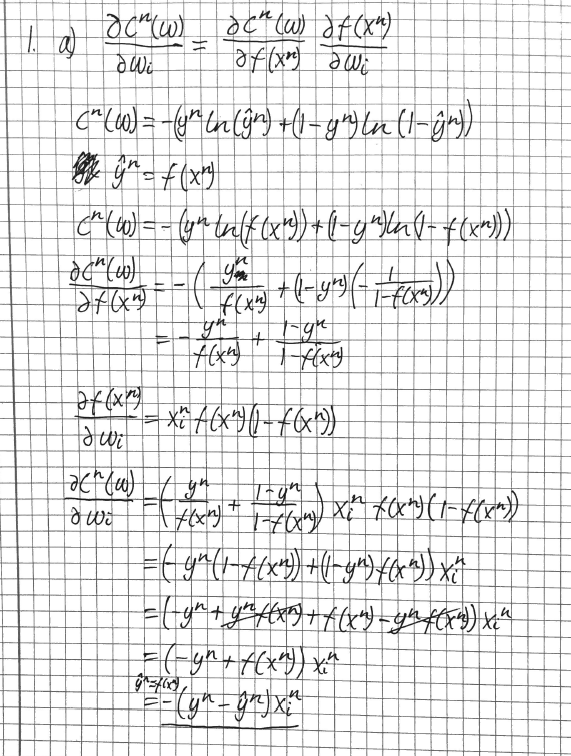 1. a) ∂Cⁿ(w)/∂wᵢ = ∂Cⁿ(w)/∂f(xⁿ) ∂f(xⁿ)/∂wᵢ
Cⁿ(w) = -(yⁿ ln(ŷⁿ) + (1-yⁿ) ln(1-ŷⁿ))
ŷⁿ = f(xⁿ)
Cⁿ(w) = -(yⁿ ln(f(xⁿ)) + (1-yⁿ) ln(1-f(xⁿ)))
∂Cⁿ(w)/∂f(xⁿ) = -(yⁿ/f(xⁿ) + (1-yⁿ)(-1/(1-f(xⁿ))))
= -yⁿ/f(xⁿ) + (1-yⁿ)/(1-f(xⁿ))
∂f(xⁿ)/∂wᵢ = xᵢⁿ f(xⁿ)(1-f(xⁿ))
∂Cⁿ(w)/∂wᵢ = (-yⁿ/f(xⁿ) + (1-yⁿ)/(1-f(xⁿ))) xᵢⁿ f(xⁿ)(1-f(xⁿ))
= (-yⁿ(1-f(xⁿ)) + (1-yⁿ)f(xⁿ)) xᵢⁿ
= (-yⁿ + yⁿf(xⁿ) + f(xⁿ) - yⁿf(xⁿ)) xᵢⁿ
= (-yⁿ + f(xⁿ)) xᵢⁿ
ŷⁿ=f(xⁿ)
= -(yⁿ - ŷⁿ) xᵢⁿ